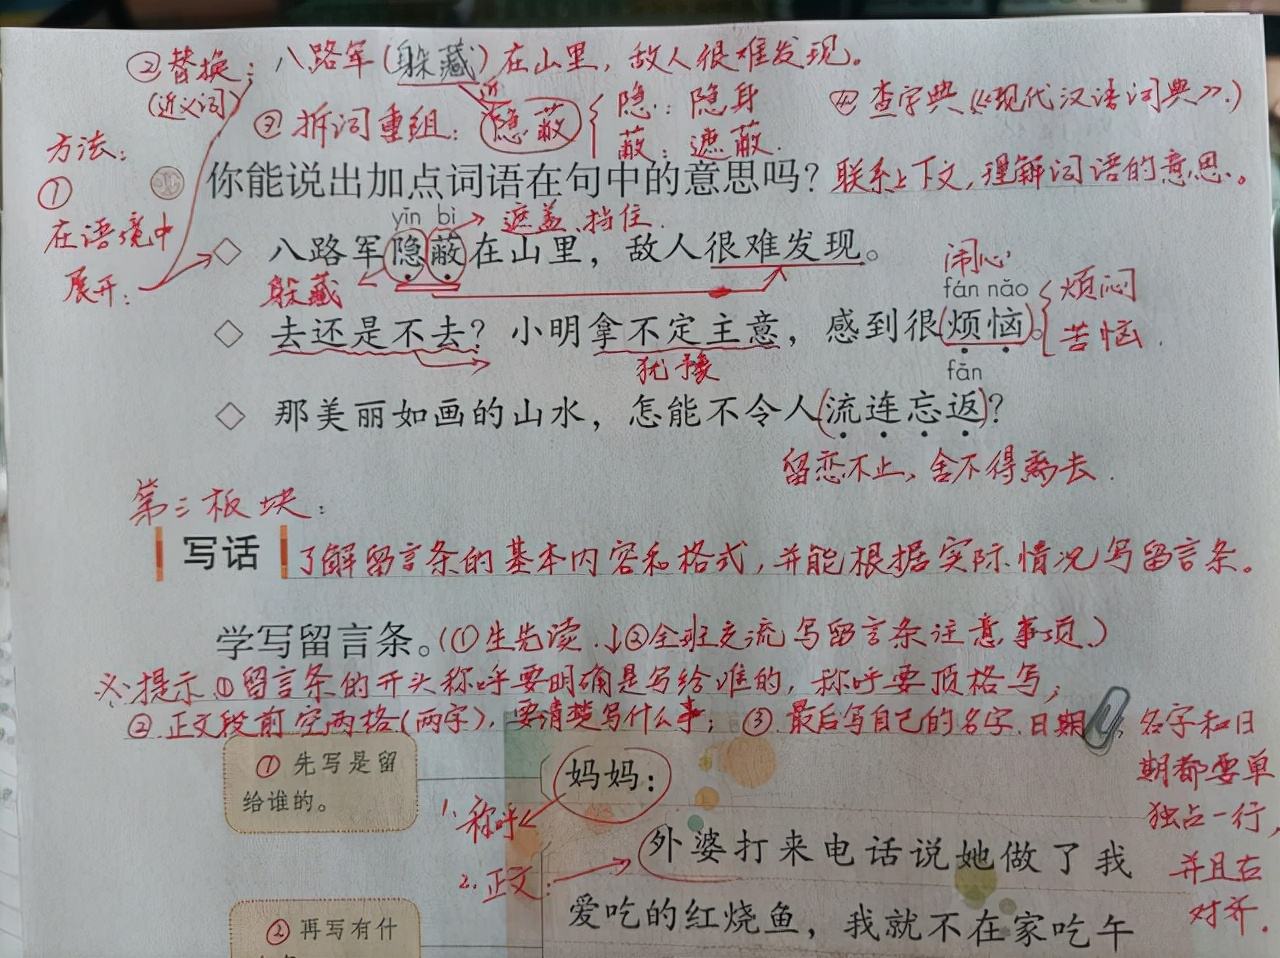 ②替换：八路军（躲藏）在山里，敌人很难发现。
（近义词）
近
③拆词重组：隐蔽
隐：隐身
蔽：遮蔽.
④查字典（《现代汉语词典》.）
方法：
①
在语境中
展开：
你能说出加点词语在句中的意思吗？联系上下文，理解词语的意思。
yǐn bì 遮盖、挡住.
◇ 八路军隐蔽在山里，敌人很难发现。
躲藏
闹心
fán nǎo
烦闷
◇ 去还是不去？小明拿不定主意，感到很烦恼。
苦恼.
犹豫
fǎn
◇ 那美丽如画的山水，怎能不令人流连忘返？
留恋不止，舍不得离去.
第二板块：
写话 了解留言条的基本内容和格式，并能根据实际情况写留言条。
学写留言条。（①生先读.↓②全班交流写留言条注意事项.）
※提示①留言条的开头称呼要明确是写给谁的，称呼要顶格写；
②正文段前空两格（两字），要清楚写什么事；③最后写自己的名字.日期
名字和日
期都要单
独占一行，
并且右
对齐.
①先写是留
给谁的。
妈妈：
1.称呼
2.正文：
外婆打来电话说她做了我
爱吃的红烧鱼，我就不在家吃午
②再写有什